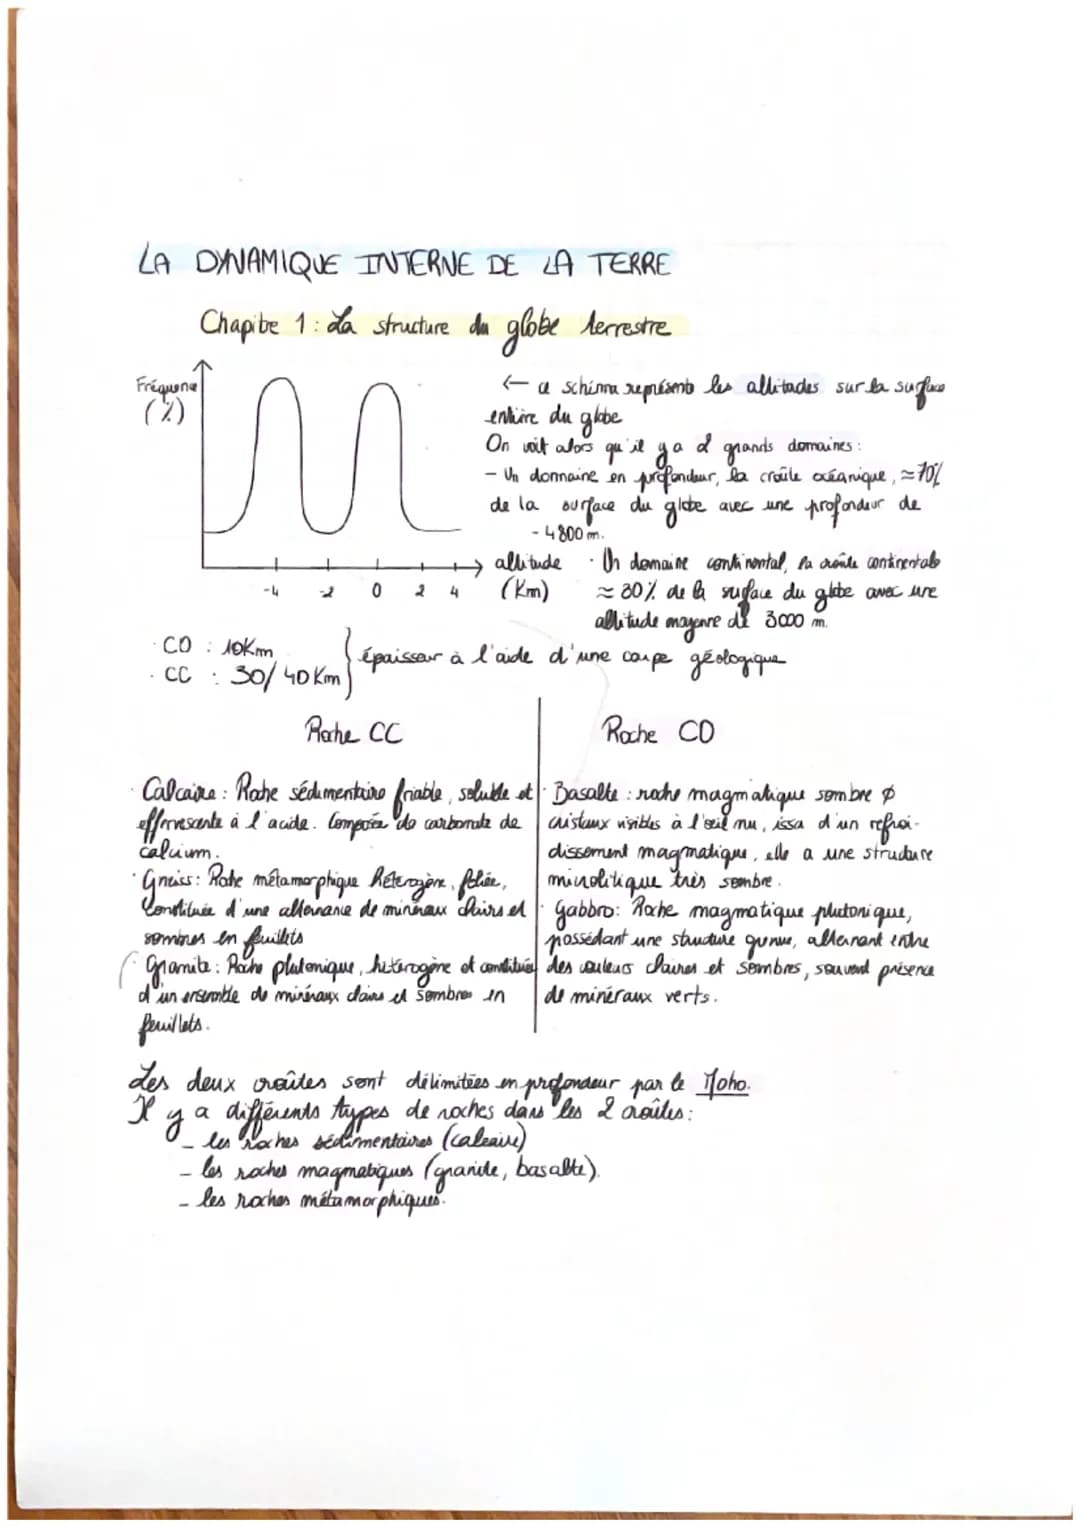 LA DYNAMIQUE INTERNE DE LA TERRE
Chapitre 1 : La structure du globe terrestre
Fréquence
(%)
← ce schéma représente les altitudes sur la surface
entière du globe
On voit alors qu'il y a 2 grands domaines :
- Un domaine en profondeur, la croûte océanique, ≈ 70%
de la surface du globe avec une profondeur de
- 4800 m.
altitude
(Km)
-4 -2 0 2 4
· Un domaine continental, la croûte continentale
≈ 30% de la surface du globe avec une
altitude moyenne de 3000 m.
· CO : 10Km
· CC : 30/40 Km
épaisseur à l'aide d'une coupe géologique
Roche CC
Roche CO
· Calcaire : Roche sédimentaire friable, soluble et
effervescente à l'acide. Composée de carbonate de
calcium.
· Gneiss : Roche métamorphique hétérogène, foliée,
Constituée d'une alternance de minéraux clairs et
sombres en feuillets
· Granite : Roche plutonique, hétérogène et constituée
d'un ensemble de minéraux clairs et sombres en
feuillets.
· Basalte : roche magmatique sombre ∅
cristaux visibles à l'œil nu, issa d'un refroi-
dissement magmatique, elle a une structure
microlitique très sombre.
· Gabbro : Roche magmatique plutonique,
possédant une structure grenue, alternant entre
des couleurs claires et sombres, souvent présence
de minéraux verts.
Les deux croûtes sont délimitées en profondeur par le Moho.
Il y a différents types de roches dans les 2 croûtes :
- les roches sédimentaires (calcaire)
- les roches magmatiques (granite, basalte).
- les roches métamorphiques.